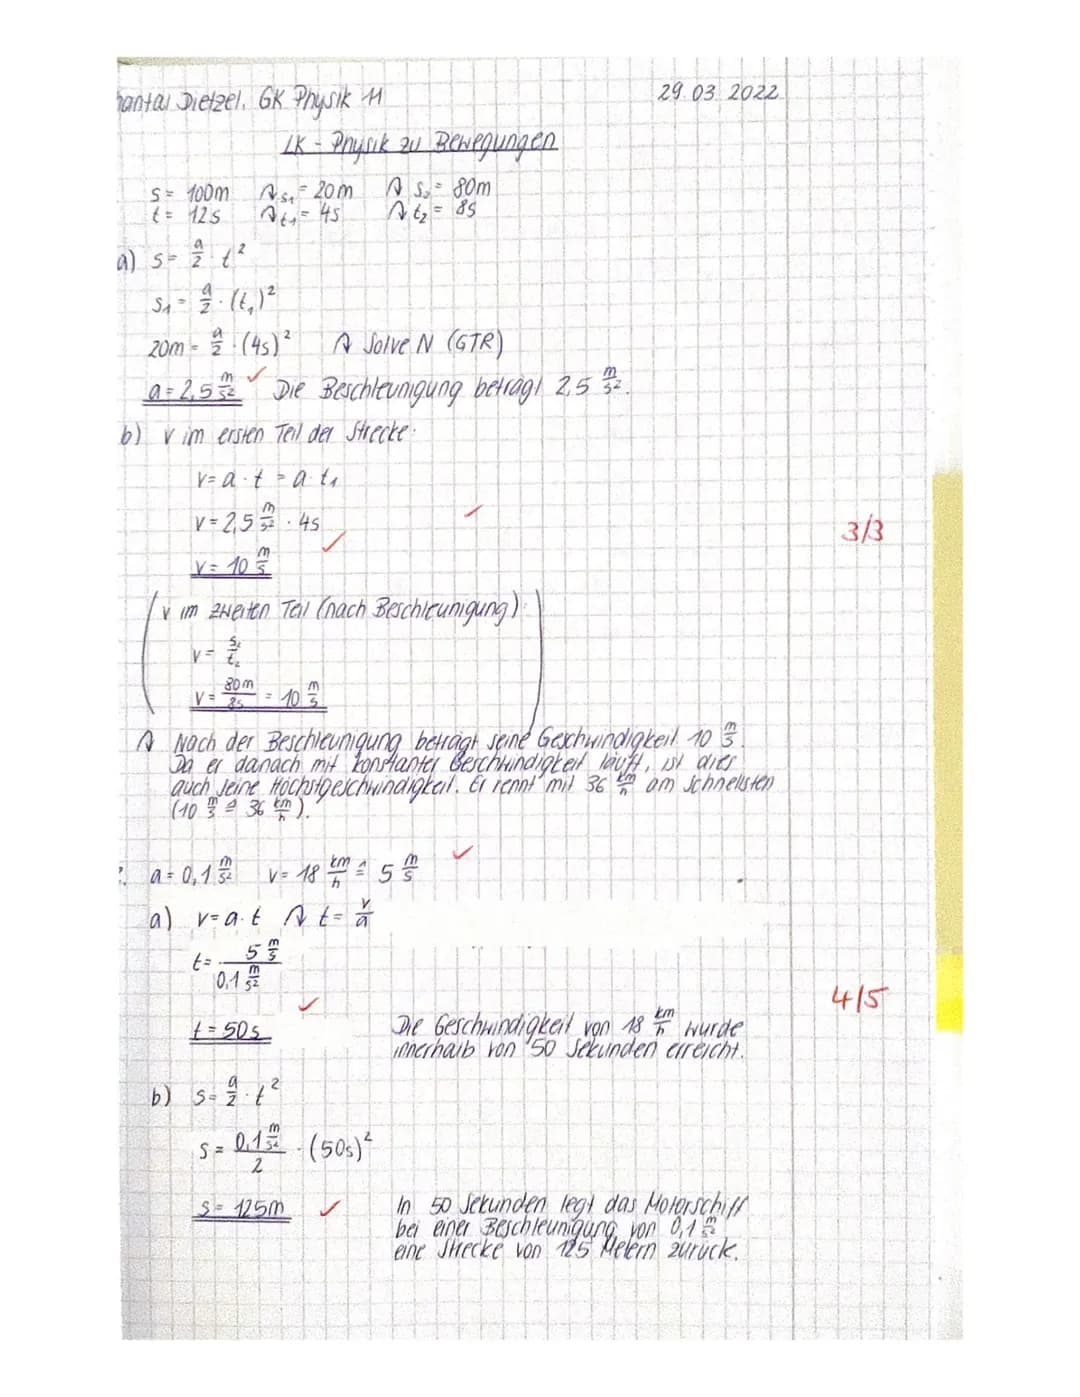 hantal Dietzel, GK Physik 11 29.03.2022
LK - Physik zu Bewegungen
s = 100m ↷ s₁ = 20m ↷ s₂ = 80m
t = 12s ↷ t₁ = 4s ↷ t₂ = 8s
a) s = a/2 · t²
s₁ = a/2 · (t₁)²
20m = a/2 · (4s)² ↷ Solve N (GTR)
a = 2,5 m/s² ✓ Die Beschleunigung beträgt 2,5 m/s².
b) v im ersten Teil der Strecke:
v = a · t = a · t₁
v = 2,5 m/s² · 4s ✓
3/3
v = 10 m/s ✓
(v im zweiten Teil (nach Beschleunigung):
v = s₂/t₂
v = 80m/8s = 10 m/s)
↷ Nach der Beschleunigung beträgt seine Geschwindigkeit 10 m/s.
Da er danach mit konstanter Geschwindigkeit läuft, ist dies
auch seine Höchstgeschwindigkeit. Er rennt mit 36 km/h am schnellsten
(10 m/s ≙ 36 km/h).
2. a = 0,1 m/s² v = 18 km/h ≙ 5 m/s ✓
a) v = a · t ↷ t = v/a
t = 5 m/s / 0,1 m/s²
4/5
t = 50s ✓ Die Geschwindigkeit von 18 km/h wurde
innerhalb von 50 Sekunden erreicht.
b) s = a/2 · t²
s = 0,1 m/s² / 2 · (50s)²
s = 125m ✓ In 50 Sekunden legt das Motorschiff
bei einer Beschleunigung von 0,1 m/s²
eine Strecke von 125 Metern zurück.